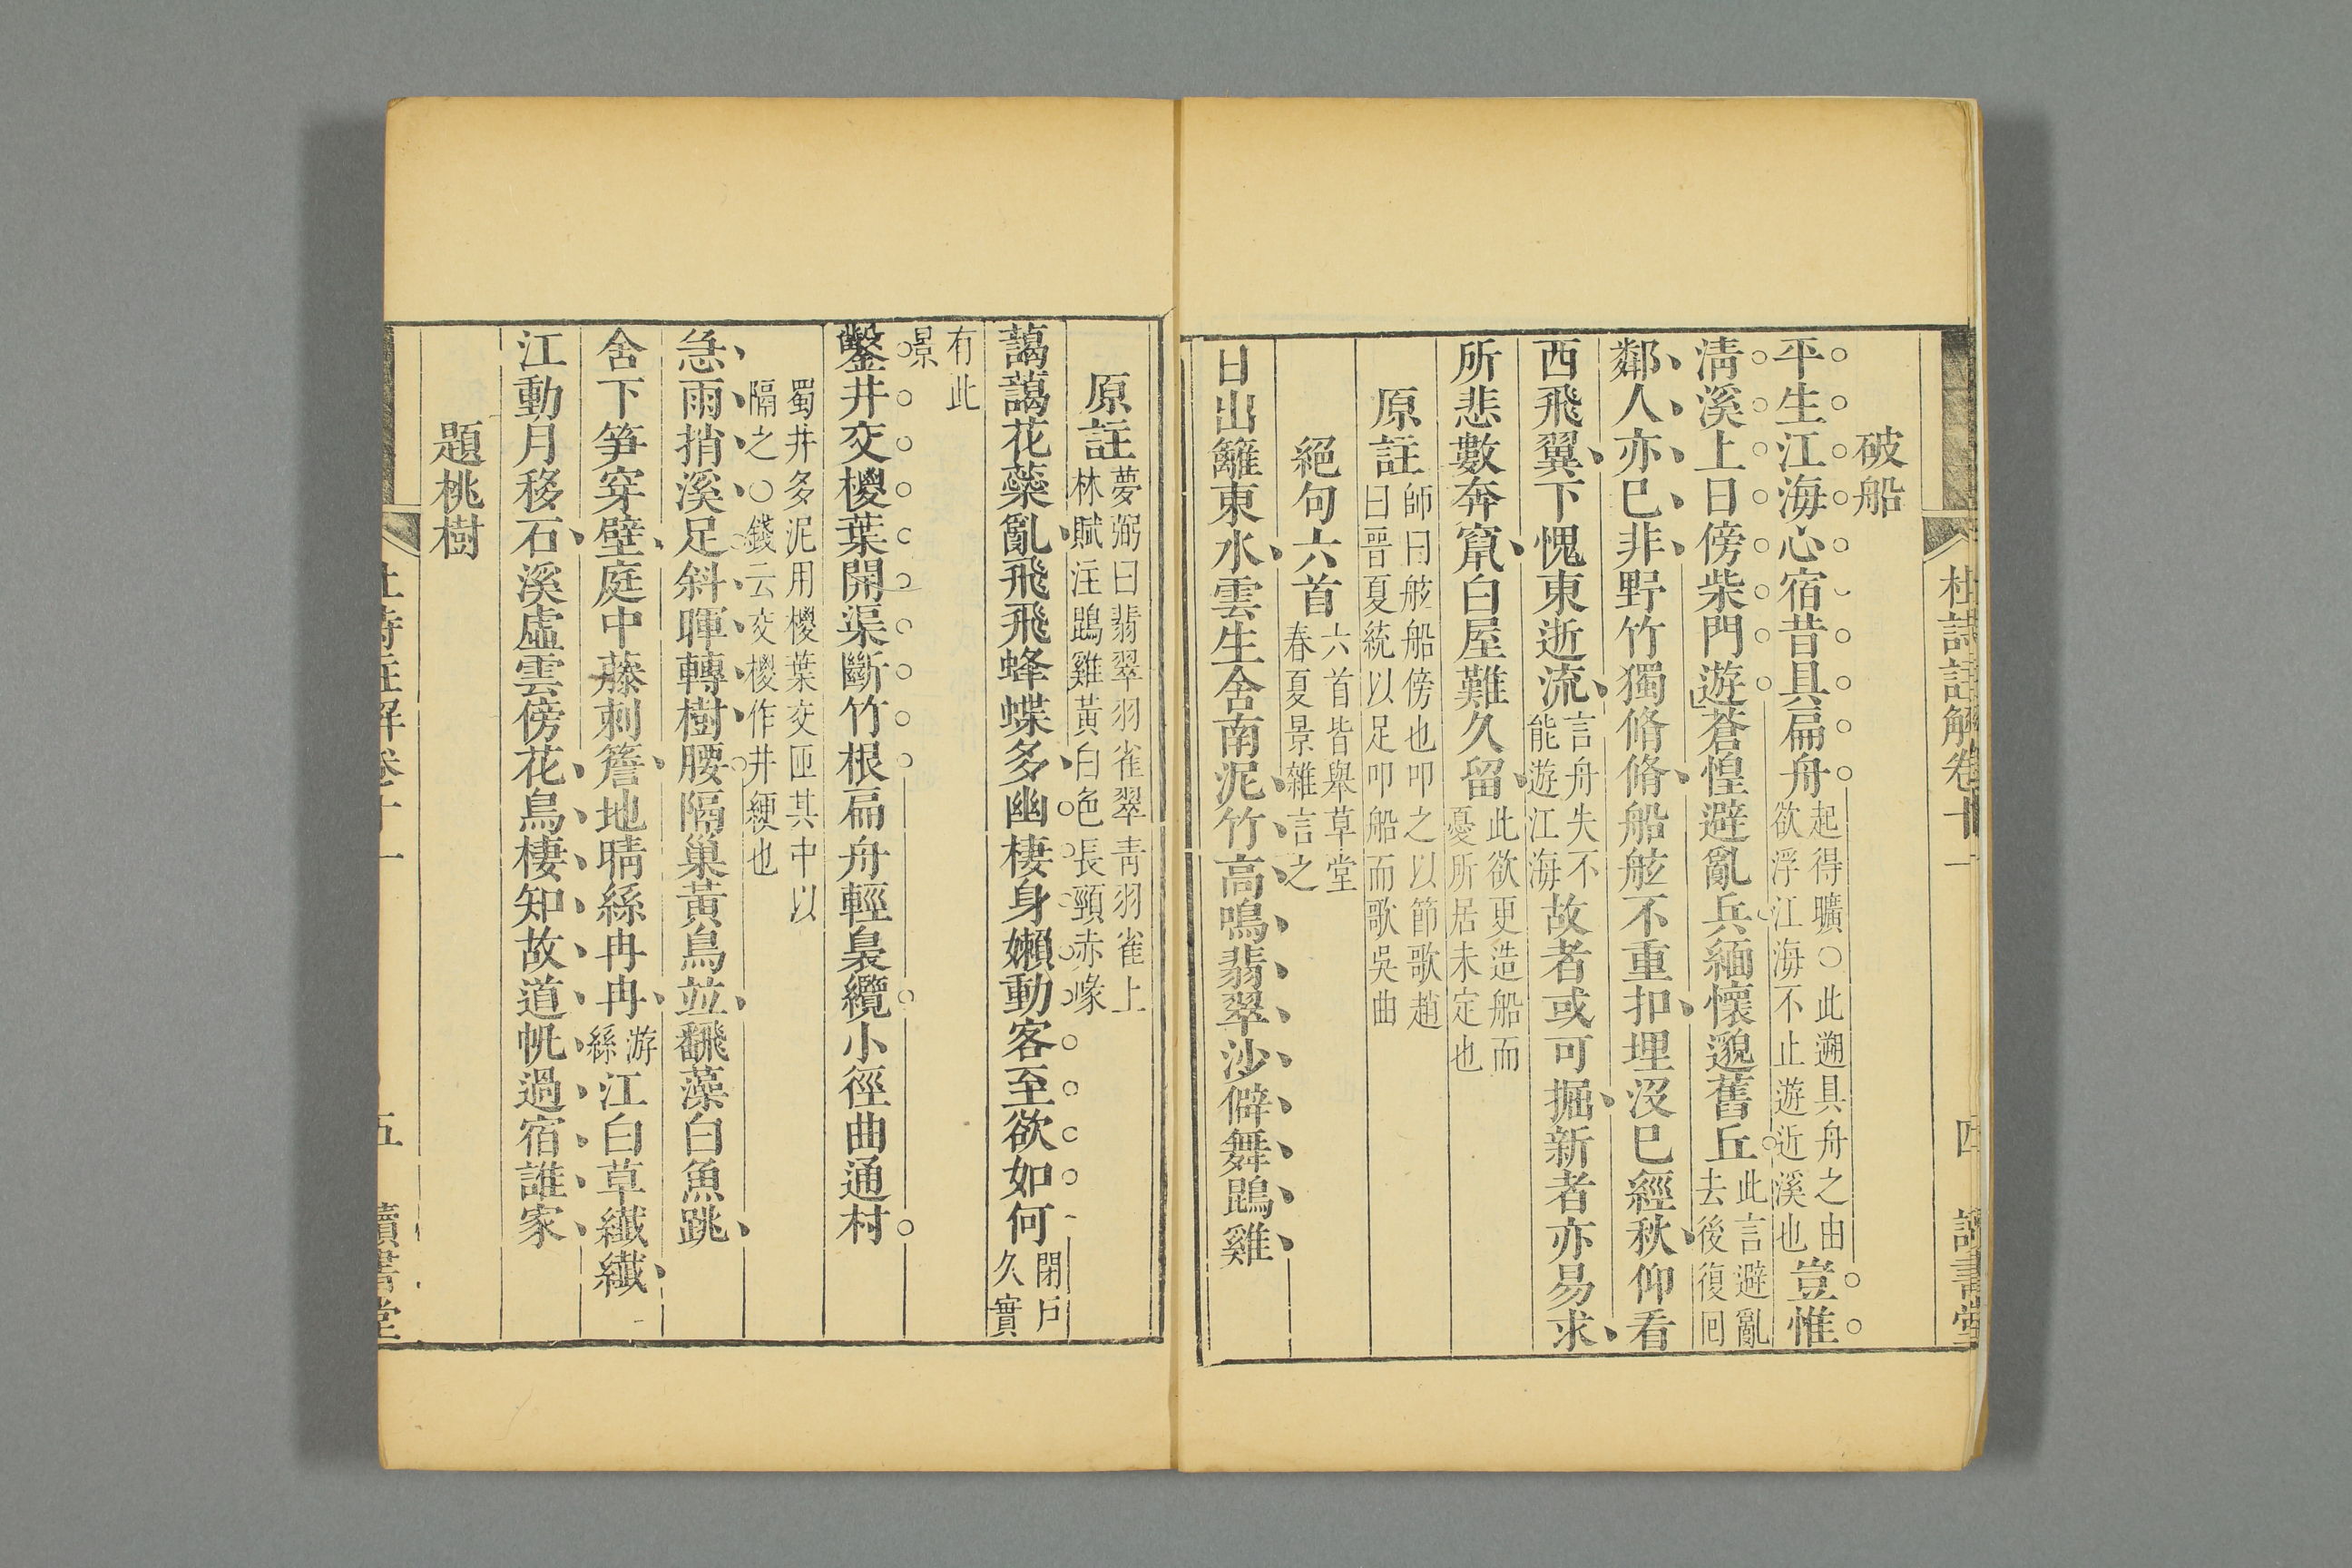 杜詩註解卷十一 四 讀書堂
破船
平生江海心宿昔具扁舟起得曠○此遡具舟之由欲浮江海不止遊近溪也豈惟
淸溪上日傍柴門遊蒼惶避亂兵緬懷邈舊丘此言避亂去後復囘
鄰人亦已非野竹獨脩脩船舷不重扣埋沒已經秋仰看
西飛翼下愧東逝流言舟失不能遊江海故者或可掘新者亦易求
所悲數奔竄白屋難久留此欲更造船而憂所居未定也
原註師曰舷船傍也叩之以節歌趙曰晉夏統以足叩船而歌吳曲
絕句六首六首皆舉草堂春夏景雜言之
日出籬東水雲生舍南泥竹高鳴翡翠沙僻舞鵾雞
原註夢弼曰翡翠羽雀翠靑羽雀上林賦注鵾雞黃白色長頸赤喙
藹藹花蘂亂飛飛蜂蝶多幽棲身嬾動客至欲如何閉戶久實
有此景
鑿井交椶葉開渠斷竹根扁舟輕裊纜小徑曲通村
蜀井多泥用椶葉交匝其中以隔之○錢云交椶作井綆也
急雨捎溪足斜暉轉樹腰隔巢黃鳥並飜藻白魚跳
舍下笋穿壁庭中藤刺簷地晴絲冉冉游絲江白草纖纖
江動月移石溪虛雲傍花鳥棲知故道帆過宿誰家
題桃樹
杜詩註解卷十一 五 讀書堂